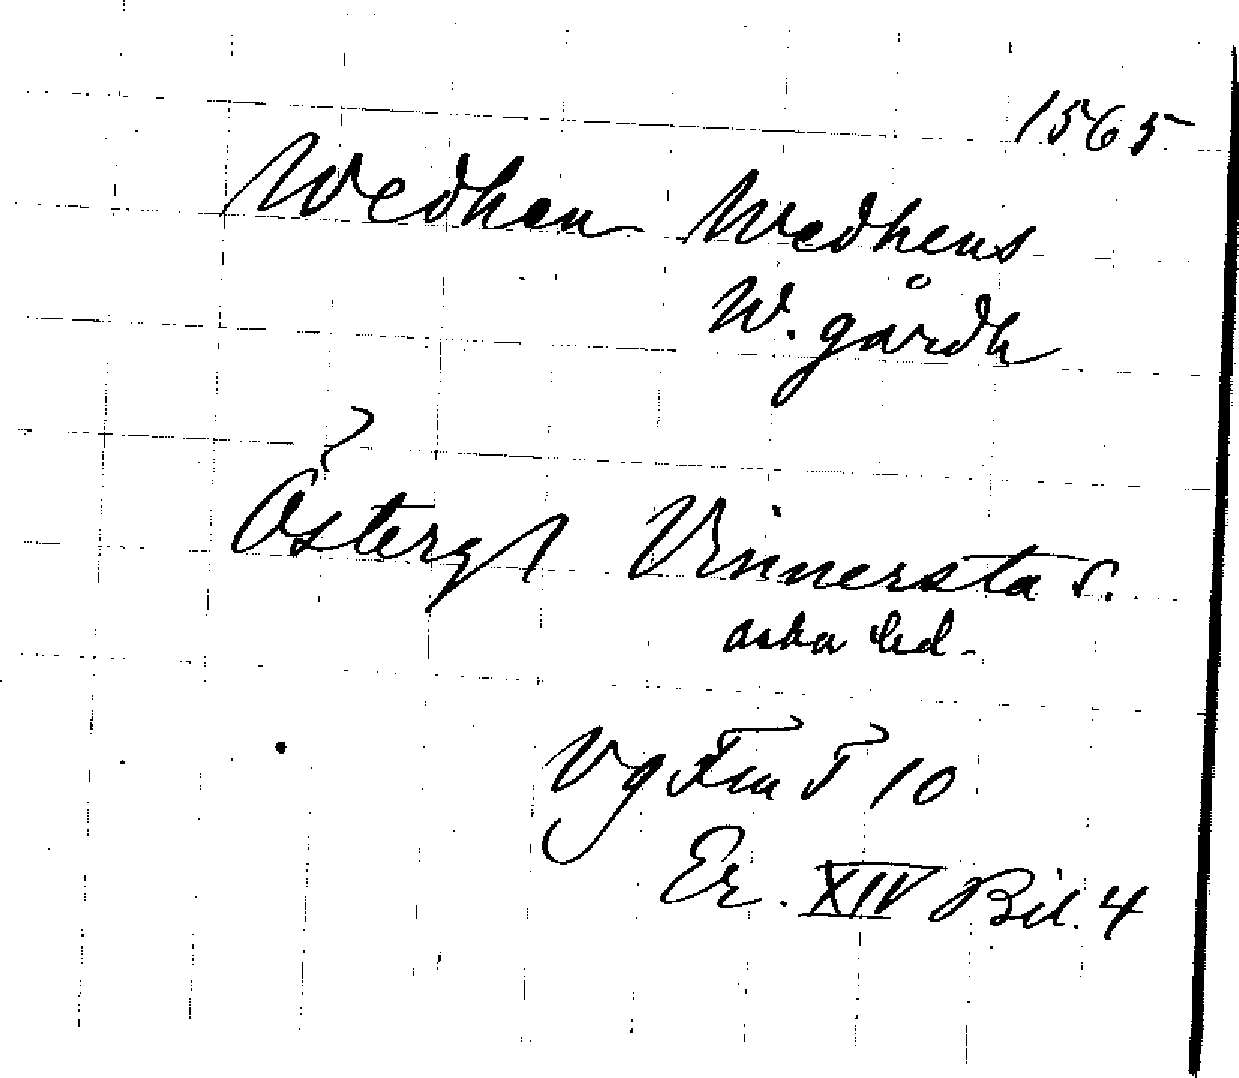 1565
Wedhen Wedhens
W. gårdh
?
Österg Vinnersta s.
aska hd.
Vg Fru T 10
Er. XIV Bil. 4